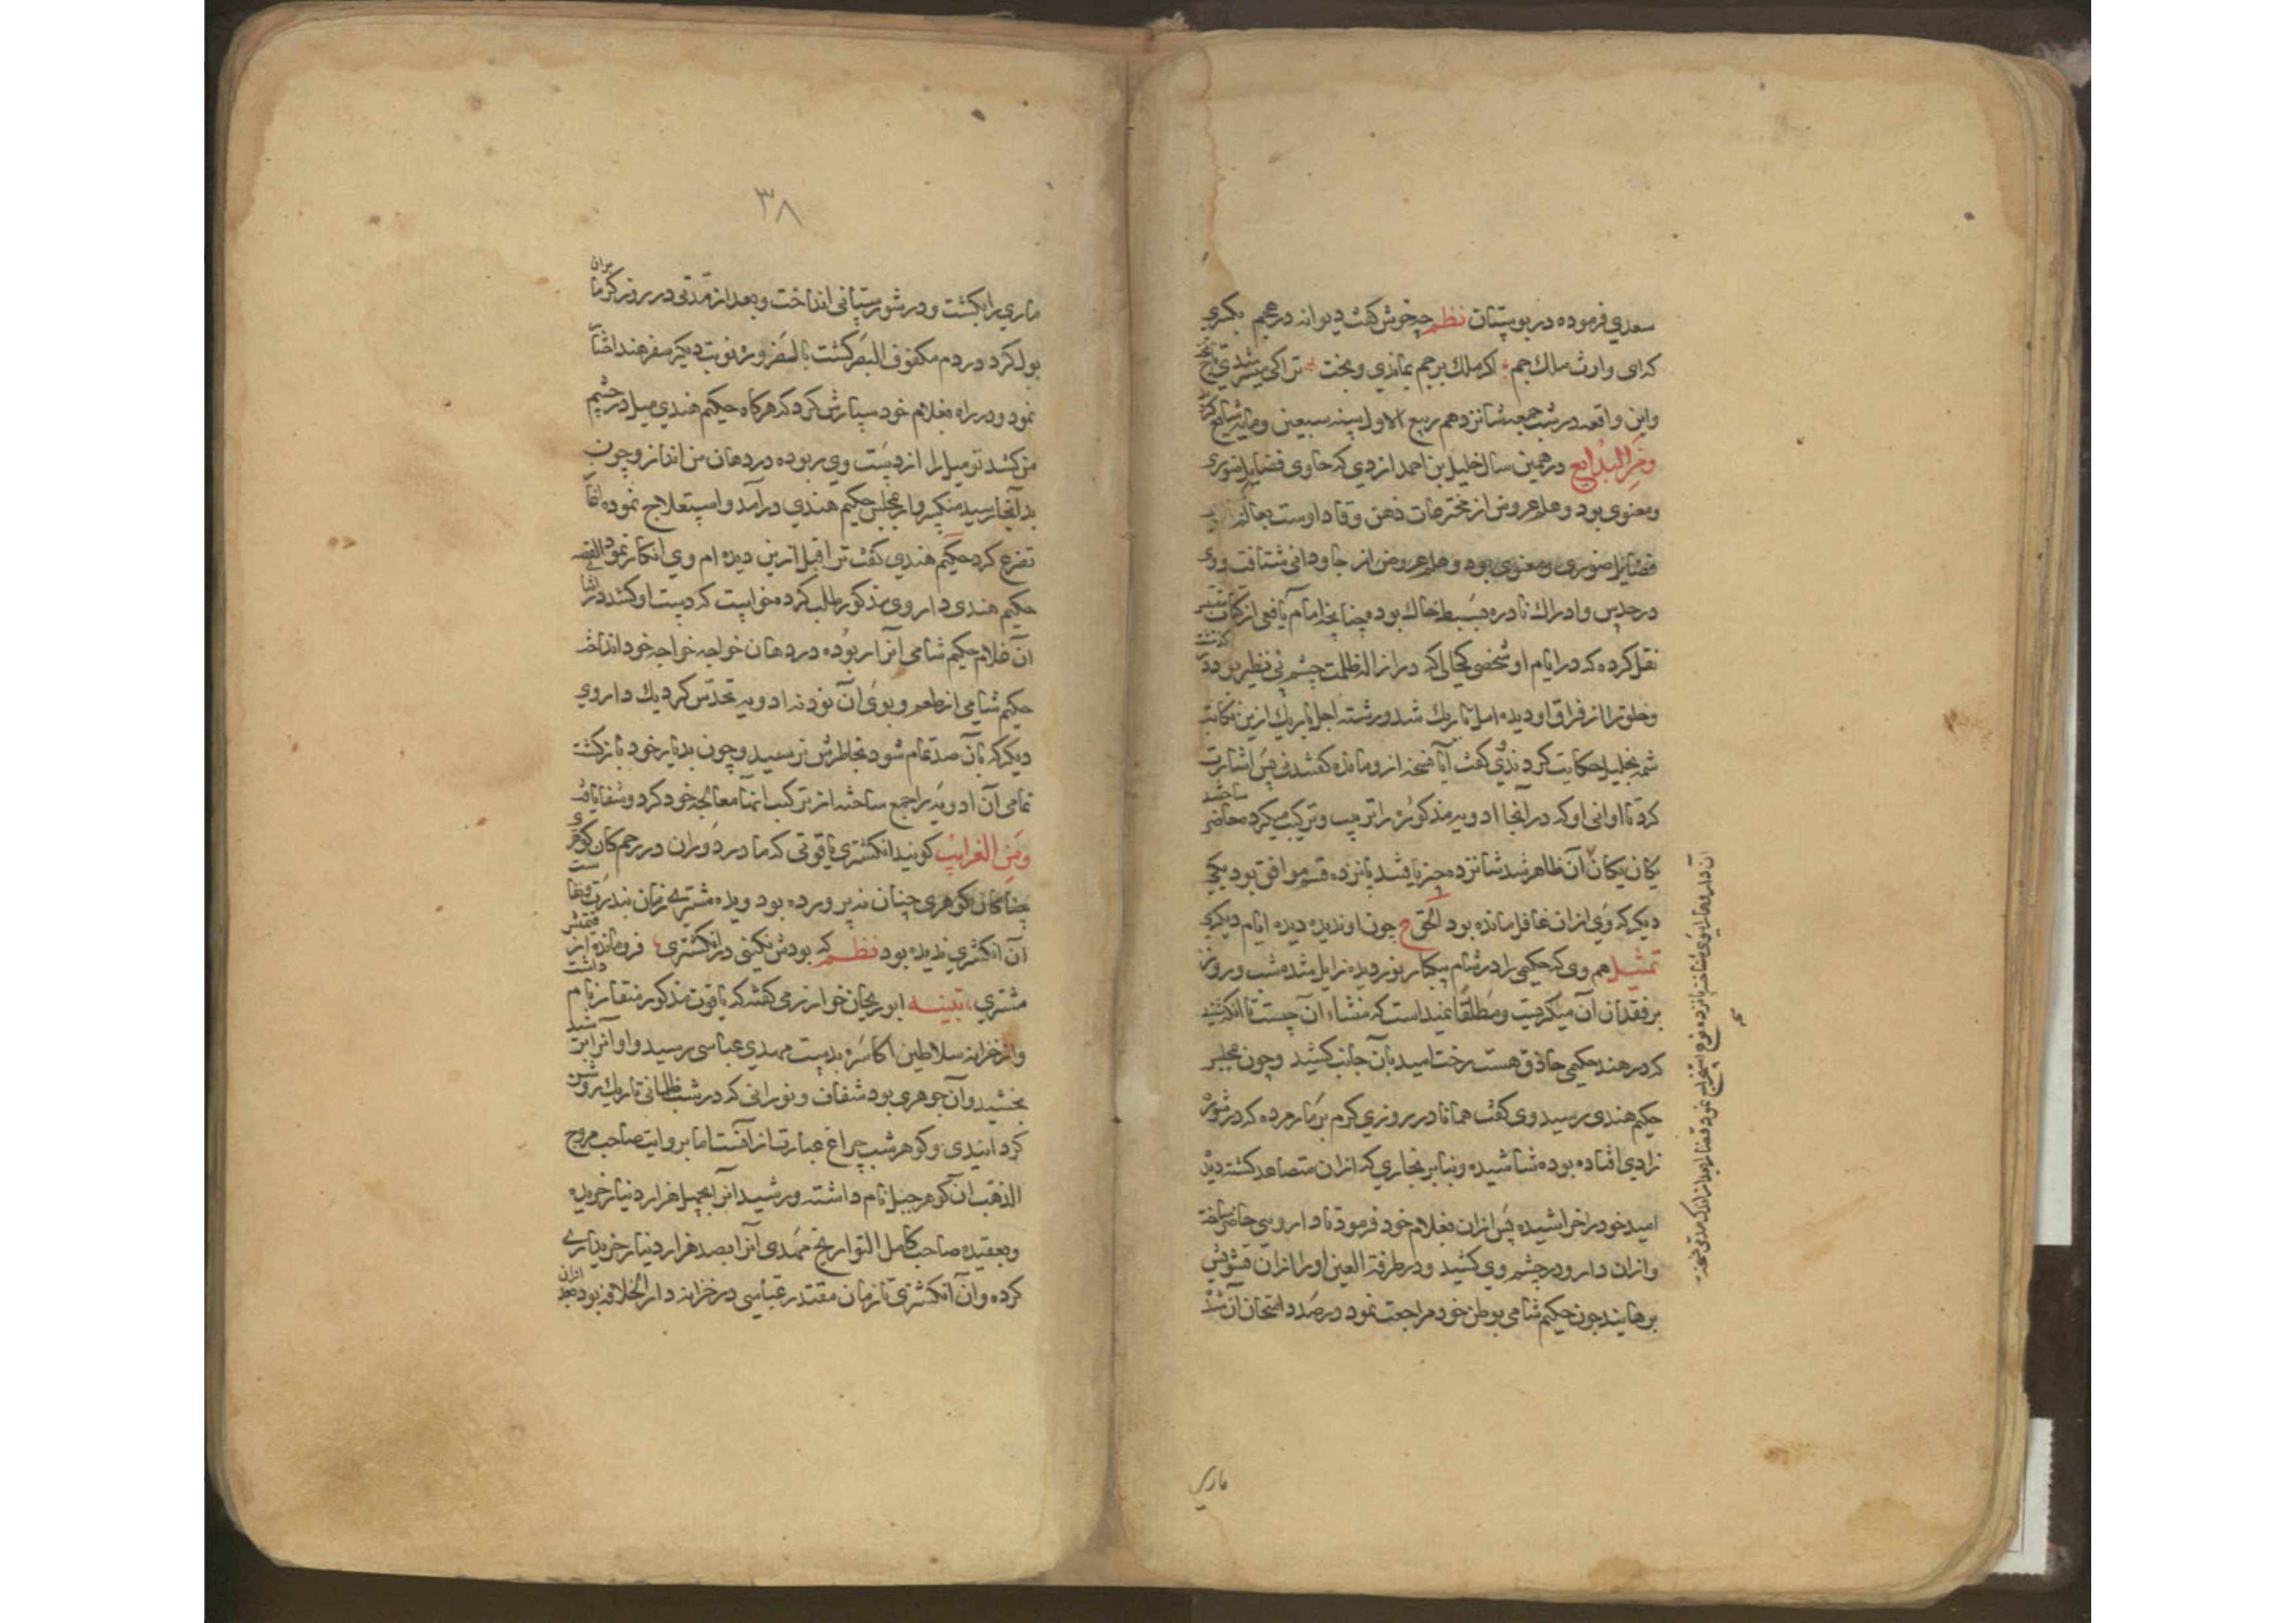 سعدی فرموده در بوستان نظم چه خوش گفت دیوانه در عجم بکسری
که ای وارث ملک جم اگر ملک بر جم بماندی و بخت ترا کی میسر شدی تاج
واین واقعه در شب جمعه شانزدهم ربیع الاول سنه سبعین ومایه شایع
ومن البدایع در همین سال خلیل بن احمد ازدی که حاوی فضایل صوری
ومعنوی بود وعلم عروض از مخترعات ذهن وقاد اوست بعالم
فضایل صوری ومعنوی بود وعلم عروض از جاودانی شتافت ووی
در حدس وادراک نادره بسیط خاک بود چنانچه امام یافعی از کتاب
نقل کرده که در ایام او شخصی کحالی که در ازاله ظلمت چشم بی نظیر بود
وخلق را از فراق او دیده امل تاریک شد ورشته اجل باریک ازین حکایت
شمه بخلیل حکایت کردند وی گفت آیا نسخه ازو مانده گفتند نی پس اشارت
کرد تا اوانی او که در آنجا ادویه مذکوره را ترتیب وترکیب میکرد حاضر ساختند
یکان یکان آن ظاهر شد شانزده جز یافتند پانزده قسم موافق بود یکی
دیگر که وی ازان غافل مانده بود الحق چون او ندیده دیده ایام دیگری
تمثیل هم وی که حکیمی را در شام بیکبار نور دیده زایل شده شب وروز
بر فقدان آن میگریست ومطلقا نمیدانست که منشاء آن چیست تا آنکه شنید
که در هند حکیمی حاذق هست رخت امید بآن جانب کشید وچون بمجلس
حکیم هندی رسید وی گفت همانا در روزی گرم بر مار مرده که در شوره
زاری افتاده بوده شاشیده وبنابر بخاری که ازان متصاعد گشته دیده
امید خود را خراشیده پس ازان بغلام خود فرمود تا داروی حاضر ساخته
وازان دارو در چشم وی کشید ودر طرفة العین او را ازان تشویش
برهانید چون حکیم شامی بوطن خود مراجعت نمود در صدد امتحان آن شد
ماری
۳۸
ماری را بکشت ودر شورستانی انداخت وبعد از مدتی در روز گرما بران
بول کرد در دم مکفوف البصر گشت بالضروره نوبت دیگر سفر هند اختیار
نمود ودر راه بغلام خود سپارش کرد که هرگاه حکیم هندی میل در چشم
من کشد تو میل را از دست وی ربوده در دهان من انداز وچون
بدآنجا رسید منکروار بمجلس حکیم هندی درآمد واستعلاج نموده
تضرع کرد حکیم هندی گفت ترا قبل ازین دیده ام وی انکار نمود القصه
حکیم هندی داروی مذکور طلب کرده خواست که دست او کشد در اثنای
آن غلام حکیم شامی آنرا ربوده در دهان خواجه خواجه خود انداخت
حکیم شامی از طعم وبوی آن نود نه ادویه تحدس کرد یک داروی
دیگر که بآن صد تمام شود بخاطرش نرسید وچون بدیار خود بازگشت
تمامی آن ادویه را جمع ساخته از ترکیب آنها معالجه خود کرد وشفا یافت
ومن الغرایب گویند انگشتری یاقوتی که مادر دوران در رحم کان گوهری
چنان کان گوهری چنان نپرورده بود ودیده مشتری زمان
آن انگشتری ندیده بود نظم که بودش نگینی در انگشتری فرومانده از قیمتش
مشتری تنبیه ابوریحان خوارزمی گفته که یاقوت مذکور منقار نام داشت
واز خزانه سلاطین اکاسره بدست مهدی عباسی رسید واو آنرا
بخشید وآن جوهری بود شفاف ونورانی که در شب ظلمانی تاریک روشن
گردانیدی وگوهر شب چراغ عبارت از آنست اما بروایت صاحب مروج
الذهب آن گوهر جبل نام داشته ورشید آنرا بچهل هزار دینار خریده
وبعقیده صاحب کامل التواریخ مهدی آنرا بصد هزار دینار خریداری
کرده وآن انگشتری تا زمان مقتدر عباسی در خزانه دار الخلافه بود